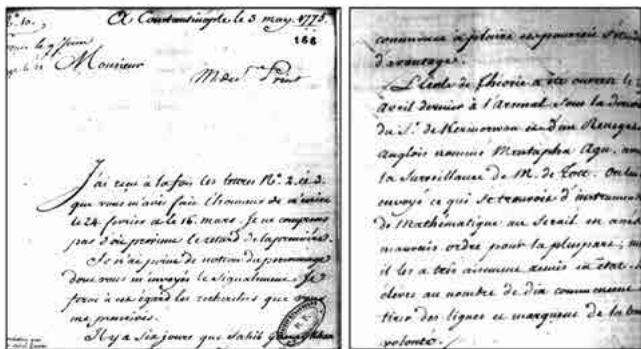 N.° 10.
A Constantinople le 3 may. 1775.
166
Monsieur
J'ai reçu à la fois les lettres N.° 2. et 3.
que vous m'avés fait l'honneur de m'écrire
le 24. fevrier et le 16. mars. Je ne comprens
pas d'où provient le retard de la première.
Je n'ai point de notion du personnage
dont vous m'envoyés le signalement. Je
ferai à cet égard les recherches que vous
me prescrivés.
Il y a six jours que Sahib
commence à plaire et pourroit s'étendre
d'avantage.
L'école de théorie a été ouverte le
Avril dernier à l'Arsenal sous la
du S.r de Kermorvan et d'un Renegat
Anglois nommé Mustapha Aga. avec
la Surveillance de M. de Tott. On lui
envoyé ce qui se trouvoit d'instrumens
de Mathématique au Serail en assés
mauvais ordre pour la pluspart;
il les a très aisement remis en état.
élèves au nombre de dix commencent à
tirer des lignes et marquent de la bonne
volonté.